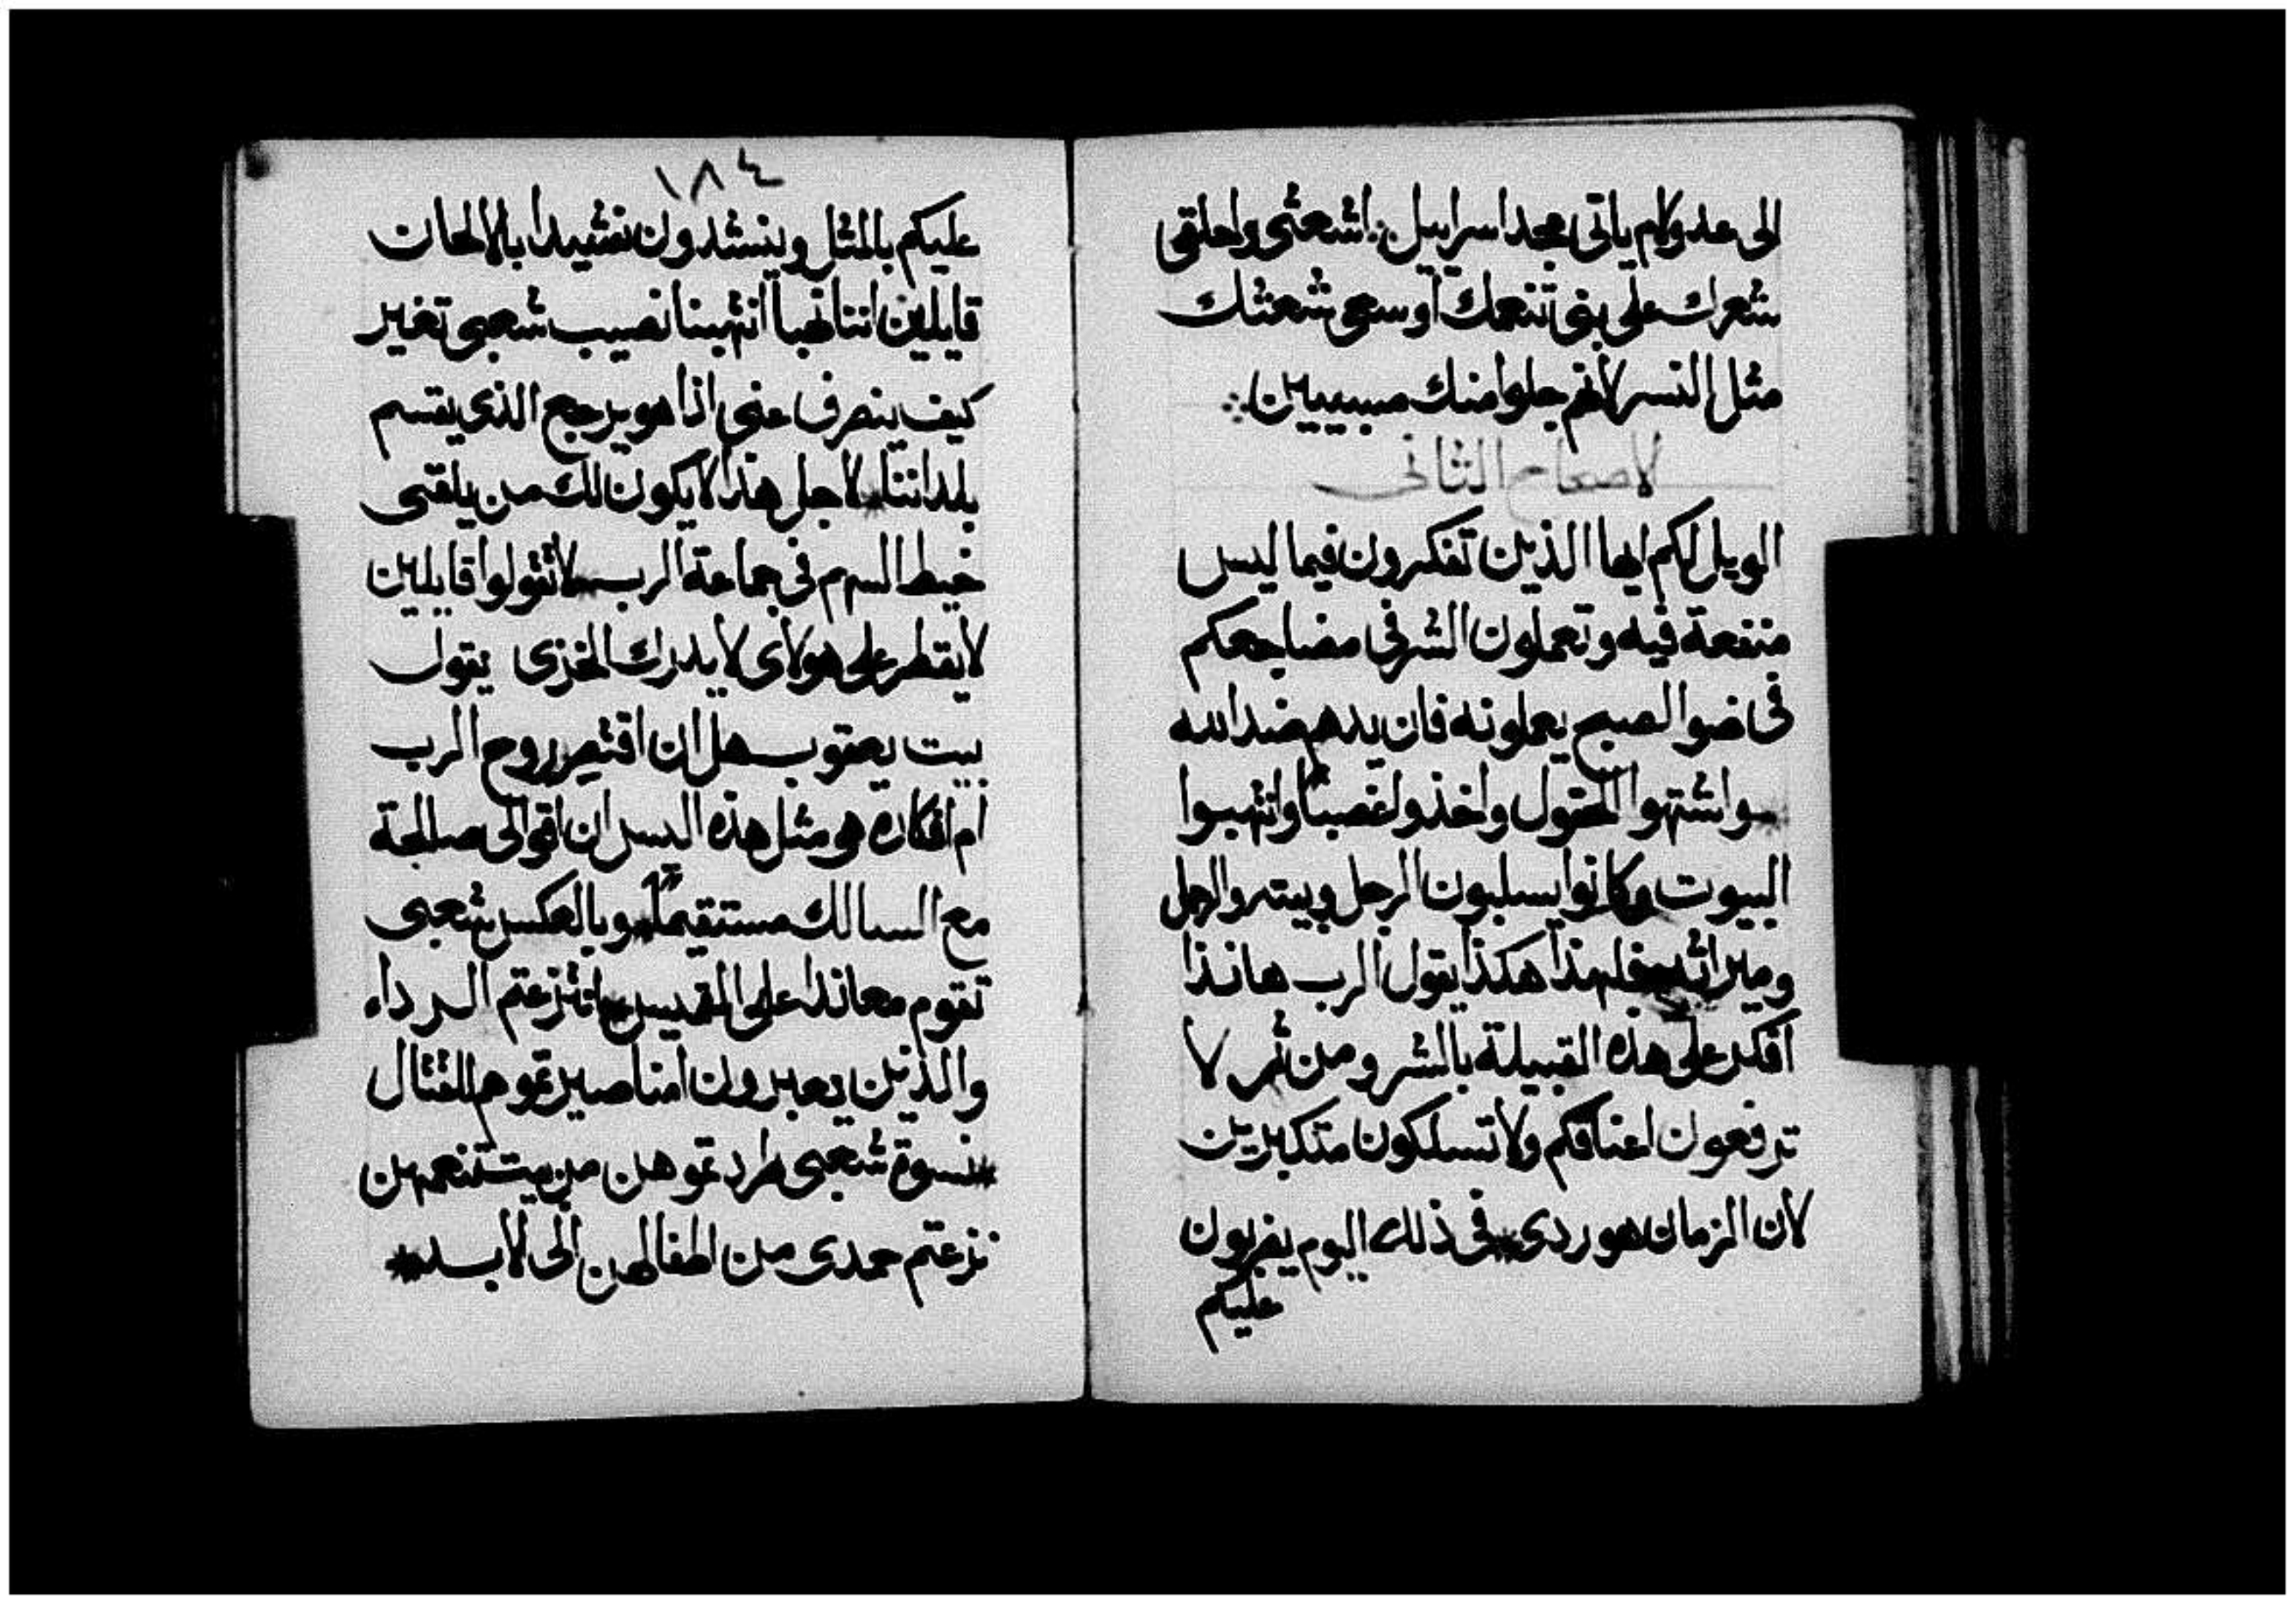 الى عدولام ياتى مجد اسراييل اشعثى واحلقى
شعرك على بنى تنعمك اوسعى شعثك
مثل النسر لانهم جلوا منك مسبيين
لاصحاح الثانى
الويل لكم ايها الذين تفكرون فيما ليس
منفعة فيه وتعملون الشر فى مضاجعكم
فى ضوا الصبح يعملونه فان يدهم ضد الله
واشتهوا الحقول واخذوا غصبا وانتهبوا
البيوت وكانوا يسلبون الرجل وبيته والرجل
وميراثه فلهذا هكذا يقول الرب هانذا
افكر على هذه القبيلة بالشر ومن ثم لا
ترفعون اعناقكم ولا تسلكون متكبرين
لان الزمان هو ردى فى ذلك اليوم يضربون
عليكم
١٨٤
عليكم بالمثل وينشدون نشيدا بالالحان
قايلين اننا نهبا انتهبنا نصيب شعبى تغير
كيف ينصرف عنى اذا هو يرجع الذى يقسم
بلداننا لاجل هذا لا يكون لك من يلقى
خيط السهم فى جماعة الرب لا تقولوا قايلين
لا يقطر على هولاى لا يدرك الخزى يقول
بيت يعقوب هل ان اقتصر روح الرب
ام افكاره هو مثل هذه اليس ان اقوالى صالحة
مع السالك مستقيما وبالعكس شعبى
تقوم معاندا على القميص نزعتم الرداء
والذين يعبرون امنا صيرتموهم للقتال
نسوة شعبى طردتموهن من بيت تنعمهن
نزعتم حمدى من اطفالهن الى الابد